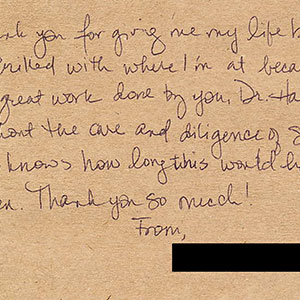 nk you for giving me my life b
thrilled with where I'm at becau
great work done by you, Dr. Ha
out the care and diligence of S
knows how long this would h
en. Thank you so much!
From,